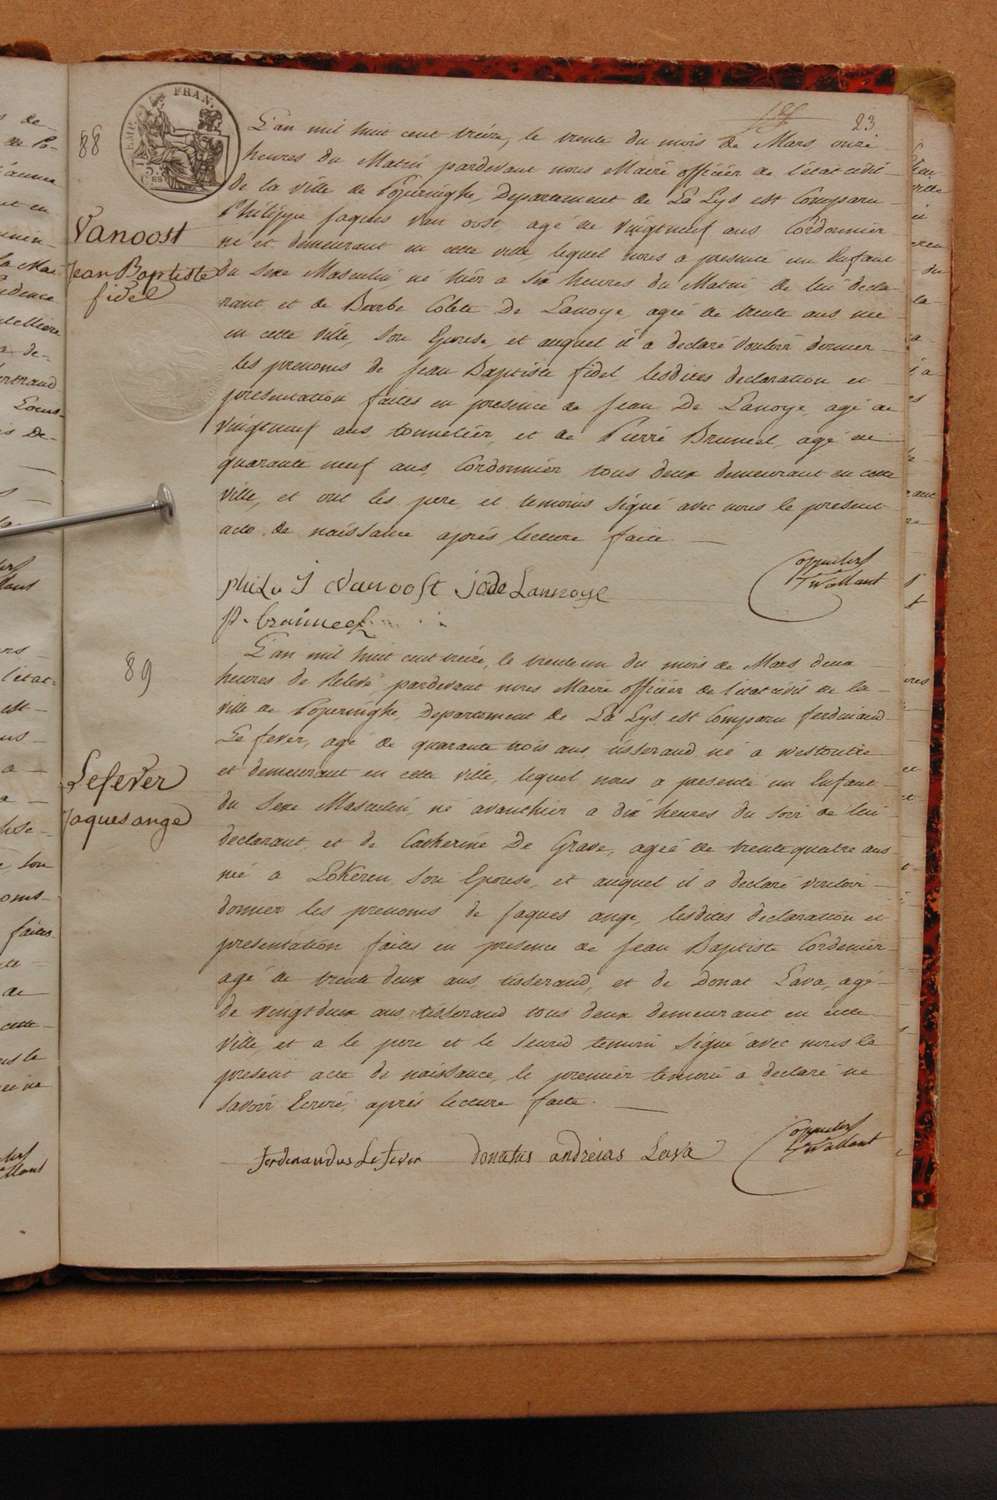 23
88
L'an mil huit cent treize, le trente du mois de Mars onze
heures du Matin pardevant nous Maire officier de l'état civil
de la ville de Poperinghe, Departement de La Lys est Comparu
Philippe Jaques Van oost, agé de vingtneuf ans Cordonnier
né et demeurant en cette ville lequel nous a presenté un Enfant
Vanoost
Jean Baptiste
fidel
du Sexe Masculin né hier a Six heures du Matin de lui decla-
rant et de Barbe Colete De Lanoye, agée de trente ans née
en cette ville, Son Epouse, et auquel il a declaré vouloir donner
les prenoms de Jean Baptiste fidel lesdites declaration et
presentation faites en presence de Jean De Lanoye, agé de
vingtneuf ans, tonnelier, et de Pierre Bruneel, agé de
quarante neuf ans Cordonnier tous deux demeurant en cette
ville, et ont les pere et temoins Signé avec nous le present
acte de naissance après lecture faite
Vanoost j de Lannoye
Wollant
89
L'an mil huit cent treize, le trente un du mois de Mars deux
heures de Relevé, pardevant nous Maire officier de l'état civil de la
ville de Poperinghe, Departement de La Lys est Comparu ferdinand
Le fever, agé de quarante trois ans, tisserand né a westoutre
et demeurant en cette ville, lequel nous a presenté un Enfant
Lefever
Jaques ange
du Sexe Masculin, né avanthier a dix heures du Soir de lui
declarant, et de Catherine De Grave, agée de trente quatre ans
née a Lokeren, Son Epouse, et auquel il a declaré vouloir
donner les prenoms de Jaques ange, lesdites declaration et
presentation faites en presence de Jean Baptiste Cordenier
agé de trente deux ans, tisserand, et de Donat Lava, agé
de vingtdeux ans tisserand tous deux demeurant en cette
ville, et a le pere et le Second temoin Signé avec nous le
present acte de naissance, le premier temoin a declaré ne
savoir Ecrire, après lecture faite.
ferdinandus Le fever donatus andreias Lava
Wollant